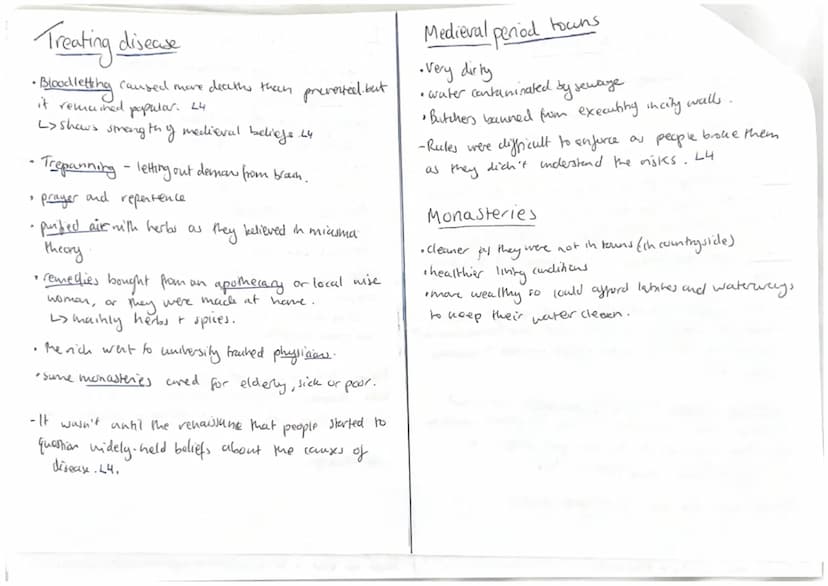 Treating disease
• Bloodletting caused more deaths than prevented but
it remained popular. L4
↳ shows strength of medieval beliefs L4
• Trepanning – letting out demon from brain.
• prayer and repentence
• purified air with herbs as they believed in miasma
theory.
• remedies bought from an apothecary or local wise
woman, or they were made at home.
↳ mainly herbs + spices.
• The rich went to university trained physicians.
• some monasteries cared for elderly, sick or poor.
- It wasn't until the renaissance that people started to
question widely-held beliefs about the causes of
disease. L4.
Medieval period towns
• Very dirty
• water contaminated by sewage
• Butchers banned from executing in city walls.
- Rules were difficult to enforce as people broke them
as they didn't understand the risks. L4
Monasteries
• cleaner they were not in towns (in countryside)
• healthier living conditions
• more wealthy so could afford and waterways
to keep their water clean.